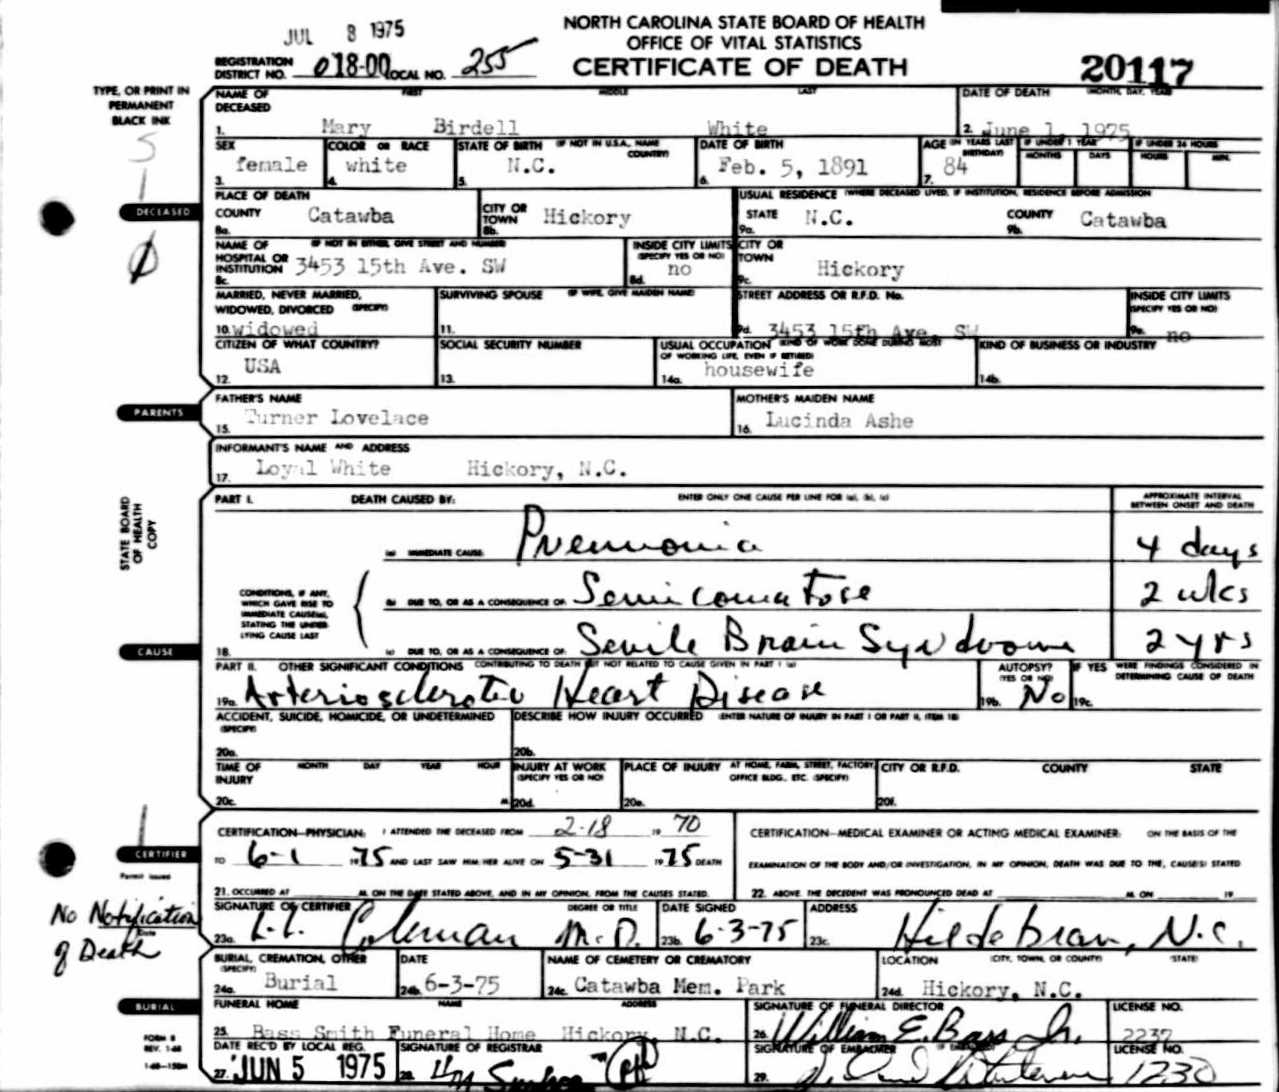 JUL 8 1975
NORTH CAROLINA STATE BOARD OF HEALTH
OFFICE OF VITAL STATISTICS
CERTIFICATE OF DEATH
REGISTRATION DISTRICT NO. 018-00 LOCAL NO. 255
20117
TYPE, OR PRINT IN PERMANENT BLACK INK
NAME OF DECEASED FIRST MIDDLE LAST DATE OF DEATH (MONTH, DAY, YEAR)
1. Mary Birdell White 2. June 1, 1975
SEX COLOR OR RACE STATE OF BIRTH (IF NOT IN U.S.A., NAME COUNTRY) DATE OF BIRTH AGE (IN YEARS LAST BIRTHDAY) IF UNDER 1 YEAR IF UNDER 24 HOURS
MONTHS DAYS HOURS MIN.
3. female 4. white 5. N.C. 6. Feb. 5, 1891 7. 84
DECEASED
PLACE OF DEATH USUAL RESIDENCE (WHERE DECEASED LIVED, IF INSTITUTION, RESIDENCE BEFORE ADMISSION)
COUNTY 8a. Catawba CITY OR TOWN 8b. Hickory STATE 9a. N.C. COUNTY 9b. Catawba
NAME OF HOSPITAL OR INSTITUTION (IF NOT IN EITHER, GIVE STREET AND NUMBER) 8c. 3453 15th Ave. SW INSIDE CITY LIMITS (SPECIFY YES OR NO) 8d. no CITY OR TOWN 9c. Hickory
MARRIED, NEVER MARRIED, WIDOWED, DIVORCED (SPECIFY) SURVIVING SPOUSE (IF WIFE, GIVE MAIDEN NAME) STREET ADDRESS OR R.F.D. No. INSIDE CITY LIMITS (SPECIFY YES OR NO)
10. widowed 11. 9d. 3453 15th Ave. SW 9e. no
CITIZEN OF WHAT COUNTRY? SOCIAL SECURITY NUMBER USUAL OCCUPATION (KIND OF WORK DONE DURING MOST OF WORKING LIFE, EVEN IF RETIRED) KIND OF BUSINESS OR INDUSTRY
12. USA 13. 14a. housewife 14b.
PARENTS
FATHER'S NAME MOTHER'S MAIDEN NAME
15. Turner Lovelace 16. Lucinda Ashe
INFORMANT'S NAME AND ADDRESS
17. Loyal White Hickory, N.C.
STATE BOARD OF HEALTH COPY
PART I. DEATH CAUSED BY: ENTER ONLY ONE CAUSE PER LINE FOR (a), (b), (c) APPROXIMATE INTERVAL BETWEEN ONSET AND DEATH
(a) IMMEDIATE CAUSE: Pneumonia 4 days
CONDITIONS, IF ANY, WHICH GAVE RISE TO IMMEDIATE CAUSE(a), STATING THE UNDERLYING CAUSE LAST
(b) DUE TO, OR AS A CONSEQUENCE OF: Semicomatose 2 wks
CAUSE
18. (c) DUE TO, OR AS A CONSEQUENCE OF: Senile Brain Syndrome 2 yrs
PART II. OTHER SIGNIFICANT CONDITIONS CONTRIBUTING TO DEATH BUT NOT RELATED TO CAUSE GIVEN IN PART I (a) AUTOPSY? (YES OR NO) IF YES WERE FINDINGS CONSIDERED IN DETERMINING CAUSE OF DEATH
19a. Arteriosclerotic Heart Disease 19b. No 19c.
ACCIDENT, SUICIDE, HOMICIDE, OR UNDETERMINED (SPECIFY) DESCRIBE HOW INJURY OCCURRED (ENTER NATURE OF INJURY IN PART I OR PART II, ITEM 18)
20a. 20b.
TIME OF INJURY MONTH DAY YEAR HOUR INJURY AT WORK (SPECIFY YES OR NO) PLACE OF INJURY AT HOME, FARM, STREET, FACTORY, OFFICE BLDG., ETC. (SPECIFY) CITY OR R.F.D. COUNTY STATE
20c. M. 20d. 20e. 20f.
CERTIFIER
Permit issued
Date
No Notification of Death
CERTIFICATION—PHYSICIAN: I ATTENDED THE DECEASED FROM 2-18 19 70
TO 6-1 1975 AND LAST SAW HIM/HER ALIVE ON 5-31 1975 DEATH
21. OCCURRED AT M. ON THE DATE STATED ABOVE, AND IN MY OPINION, FROM THE CAUSES STATED.
CERTIFICATION—MEDICAL EXAMINER OR ACTING MEDICAL EXAMINER: ON THE BASIS OF THE
EXAMINATION OF THE BODY AND/OR INVESTIGATION, IN MY OPINION, DEATH WAS DUE TO THE, CAUSE(S) STATED
22. ABOVE. THE DECEDENT WAS PRONOUNCED DEAD AT M. ON 19
SIGNATURE OF CERTIFIER DEGREE OR TITLE DATE SIGNED ADDRESS
23a. Coleman M.D. 23b. 6-3-75 23c. Hildebran, N.C.
BURIAL, CREMATION, OTHER (SPECIFY) DATE NAME OF CEMETERY OR CREMATORY LOCATION (CITY, TOWN, OR COUNTY) (STATE)
24a. Burial 24b. 6-3-75 24c. Catawba Mem. Park 24d. Hickory, N.C.
BURIAL
FUNERAL HOME NAME ADDRESS SIGNATURE OF FUNERAL DIRECTOR LICENSE NO.
25. Bass Smith Funeral Home Hickory N.C. 26. William E. Bass Jr. 2237
FORM 8
REV. 1-68
DATE REC'D BY LOCAL REG. SIGNATURE OF REGISTRAR SIGNATURE OF EMBALMER LICENSE NO.
27. JUN 5 1975 28. 29. 1230